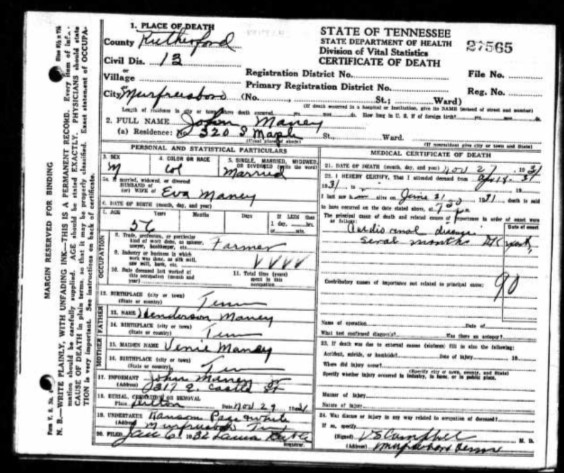 STATE OF TENNESSEE
STATE DEPARTMENT OF HEALTH
Division of Vital Statistics
CERTIFICATE OF DEATH
27565
1. PLACE OF DEATH
County Rutherford
Civil Dis. 13
Village
City Murfreesboro (No. St.; Ward)
Registration District No. File No.
Primary Registration District No. Reg. No.
2. FULL NAME John Maney
(a) Residence: No. 320 S Maple St. Ward.
PERSONAL AND STATISTICAL PARTICULARS
3. SEX M
4. COLOR OR RACE Col
5. SINGLE, MARRIED, WIDOWED, Married
HUSBAND of
(or) WIFE of Eva Maney
6. DATE OF BIRTH (month, day, and year)
7. AGE Years Months Days
56
OCCUPATION
8. Trade, profession, or particular
kind of work done, Farmer
9. Industry or business in which
work was done,
10. Date deceased last worked at
this occupation (month and
year)
11. Total time (years)
spent in this
occupation
12. BIRTHPLACE (city or town)
(State or country) Tenn
FATHER
13. NAME Henderson Maney
14. BIRTHPLACE (city or town)
(State or country) Tenn
MOTHER
15. MAIDEN NAME Maney
16. BIRTHPLACE (city or town)
(State or country) Ten
17. INFORMANT John Maney
(Address) E Castle St
18. BURIAL, CREMATION OR REMOVAL
Place Date Nov 29
19. UNDERTAKER Ransom
(Address) Murfreesboro
20. FILED Jan 6 Laura
MEDICAL CERTIFICATE OF DEATH
21. DATE OF DEATH (month, day, and year) Nov 27 1931
22. I HEREBY CERTIFY, That I attended deceased from
31
I last saw alive on June 31 1931 death is said
to have occurred on the date stated above, at 7:30
The principal cause of death and related causes of importance in order of onset were
as follows: Date of onset
Cardio renal disease
several months
90
Contributory causes of importance not related to principal cause:
Name of operation Date of
What test confirmed diagnosis? Was there an autopsy?
23. If death was due to external causes (violence) fill in also the following:
Accident, suicide, or homicide? Date of injury 19
Where did injury occur?
(Specify city or town, county, and State)
Specify whether injury occurred in industry, in home, or in public place.
Manner of injury
Nature of injury
24. Was disease or injury in any way related to occupation of deceased?
If so, specify
(Signed) VS Campbell M. D.
(Address) Murfreesboro Tenn
MARGIN RESERVED FOR BINDING
N. B.—WRITE PLAINLY, WITH UNFADING INK—THIS IS A PERMANENT RECORD. Every item of
mation should be carefully supplied. AGE should be stated EXACTLY. PHYSICIANS should state
CAUSE OF DEATH in plain terms, so that it may be properly classified. Exact statement of OCCUPA-
TION is very important. See instructions on back of certificate.